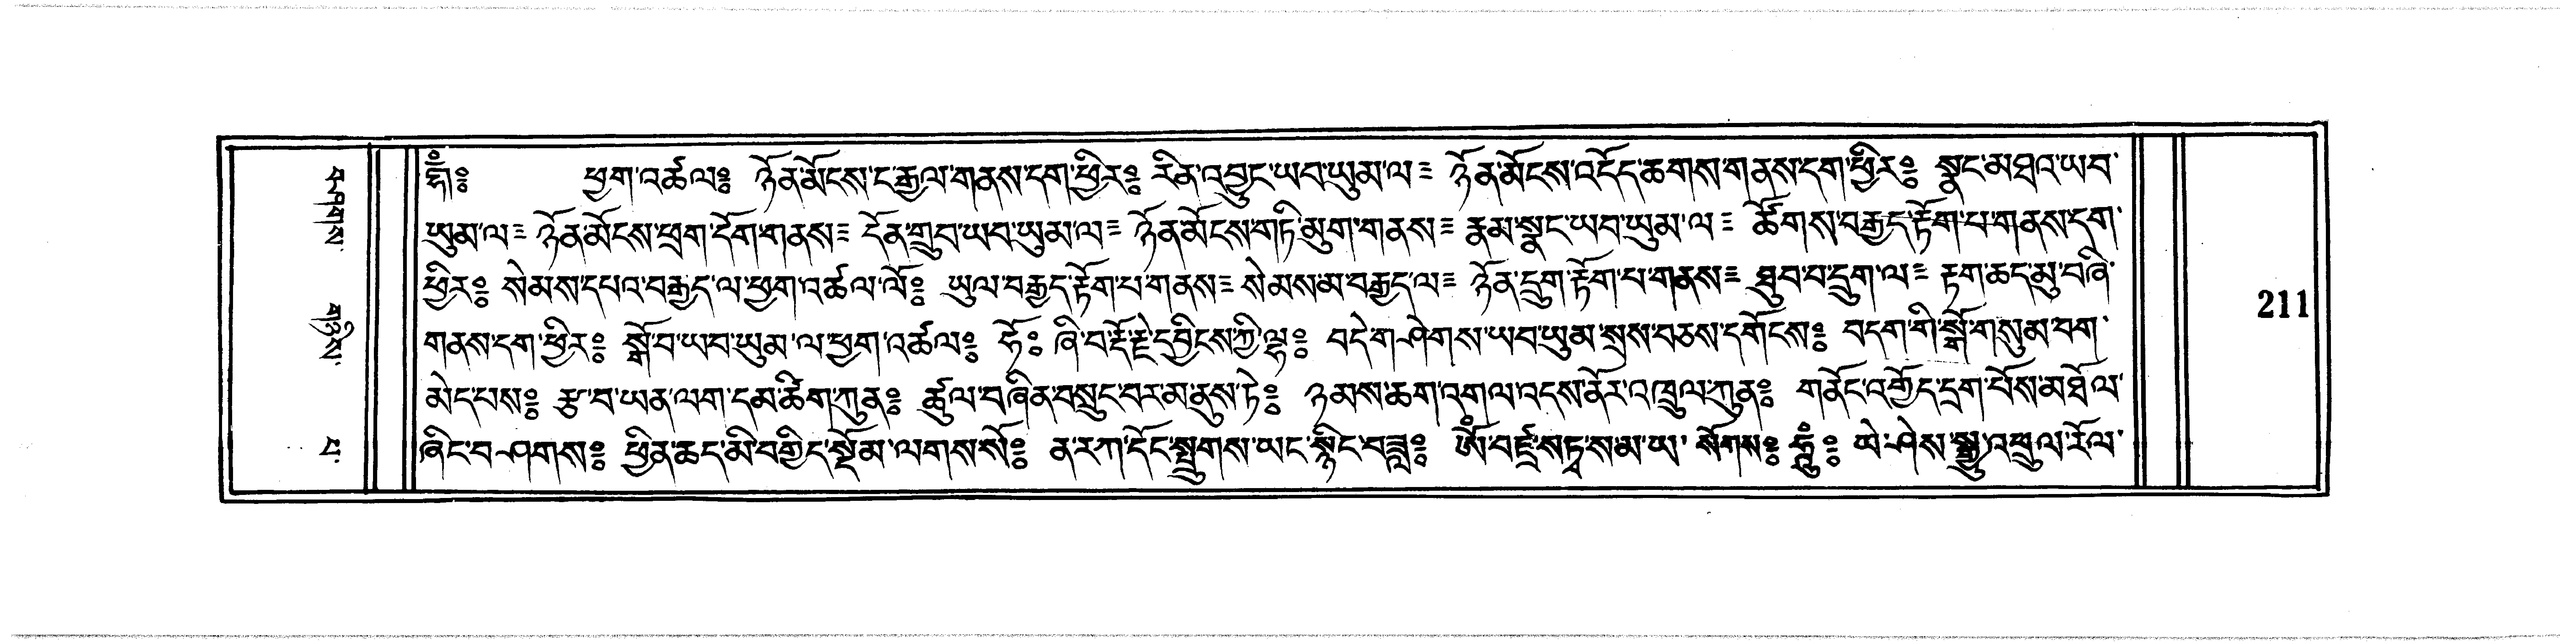 ཧྲཱིཾ༔ ཕྱག་འཚལ༔ ཉོན་མོངས་ང་རྒྱལ་གནས་དག་ཕྱིར༔ རིན་འབྱུང་ཡབ་ཡུམ་ལ༔ ཉོན་མོངས་འདོད་ཆགས་གནས་དག་ཕྱིར༔ སྣང་མཐའ་ཡབ་
ཡུམ་ལ༔ ཉོན་མོངས་ཕྲག་དོག་གནས༔ དོན་གྲུབ་ཡབ་ཡུམ་ལ༔ ཉོན་མོངས་གཏི་མུག་གནས༔ རྣམ་སྣང་ཡབ་ཡུམ་ལ༔ ཚོགས་བརྒྱད་རྟོག་པ་གནས་དག་
ཕྱིར༔ སེམས་དཔའ་བརྒྱད་ལ་ཕྱག་འཚལ་ལོ༔ ཡུལ་བརྒྱད་རྟོག་པ་གནས༔ སེམས་མ་བརྒྱད་ལ༔ ཉོན་དྲུག་རྟོག་པ་གནས༔ ཐུབ་བ་དྲུག་ལ༔ རྟག་ཆད་མུ་བཞི་
གནས་དག་ཕྱིར༔ སྒོ་བ་ཡབ་ཡུམ་ལ་ཕྱག་འཚལ༔ ཧོ༔ ཞི་བ་རྡོ་རྗེ་དབྱིངས་ཀྱི་ལྷ༔ བདེ་གཤེགས་ཡབ་ཡུམ་སྲས་བཅས་དགོངས༔ བདག་གི་སྒོ་གསུམ་བག་
མེད་པས༔ རྩ་བ་ཡན་ལག་དམ་ཚིག་ཀུན༔ ཚུལ་བཞིན་བསྲུང་བར་མ་ནུས་ཏེ༔ ཉམས་ཆག་འགལ་འདས་ནོར་འཁྲུལ་ཀུན༔ གནོང་འགྱོད་དྲག་པོས་མཐོལ་
ཞིང་བཤགས༔ ཕྱིན་ཆད་མི་བགྱིད་སྡོམ་ལགས་སོ༔ ན་རཀ་དོང་སྤྲུགས་ཡང་སྙིང་བཟླ༔ ཨོཾ་བཛྲ་སཏྭ་ས་མ་ཡ་ སོགས༔ ཧཱུྃ༔ ཡེ་ཤེས་སྒྱུ་འཕྲུལ་རོལ་
དཔབས་
པ་
211